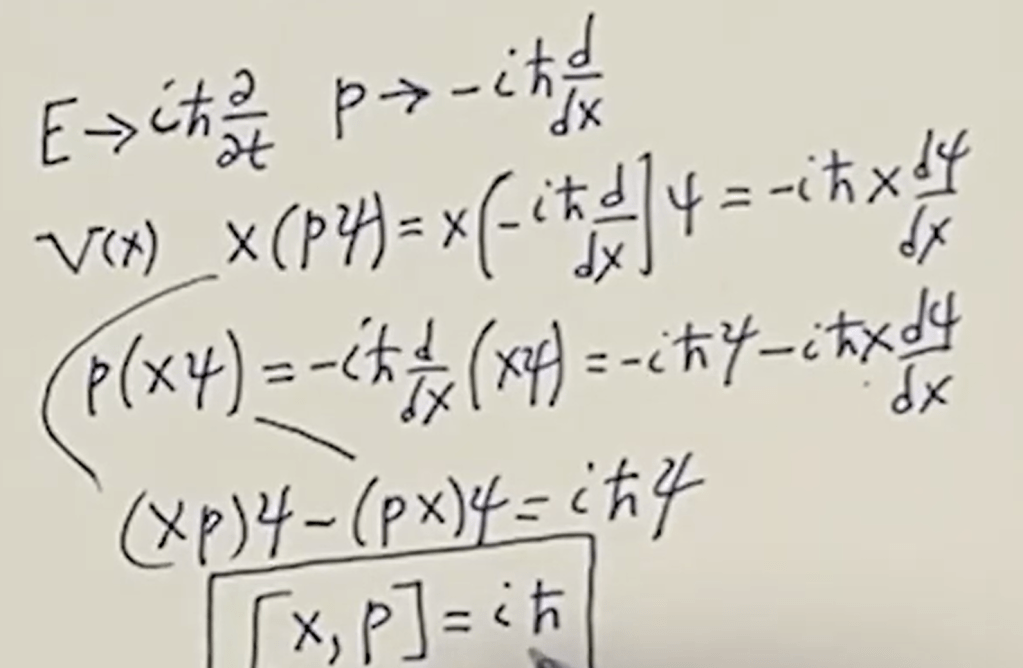 E → iħ ∂/∂t   p → -iħ d/dx
V(x)   x(pψ) = x(-iħ d/dx]ψ = -iħ x dψ/dx
p(xψ) = -iħ d/dx (xψ) = -iħψ - iħx dψ/dx
(xp)ψ - (px)ψ = iħψ
[x, p] = iħ